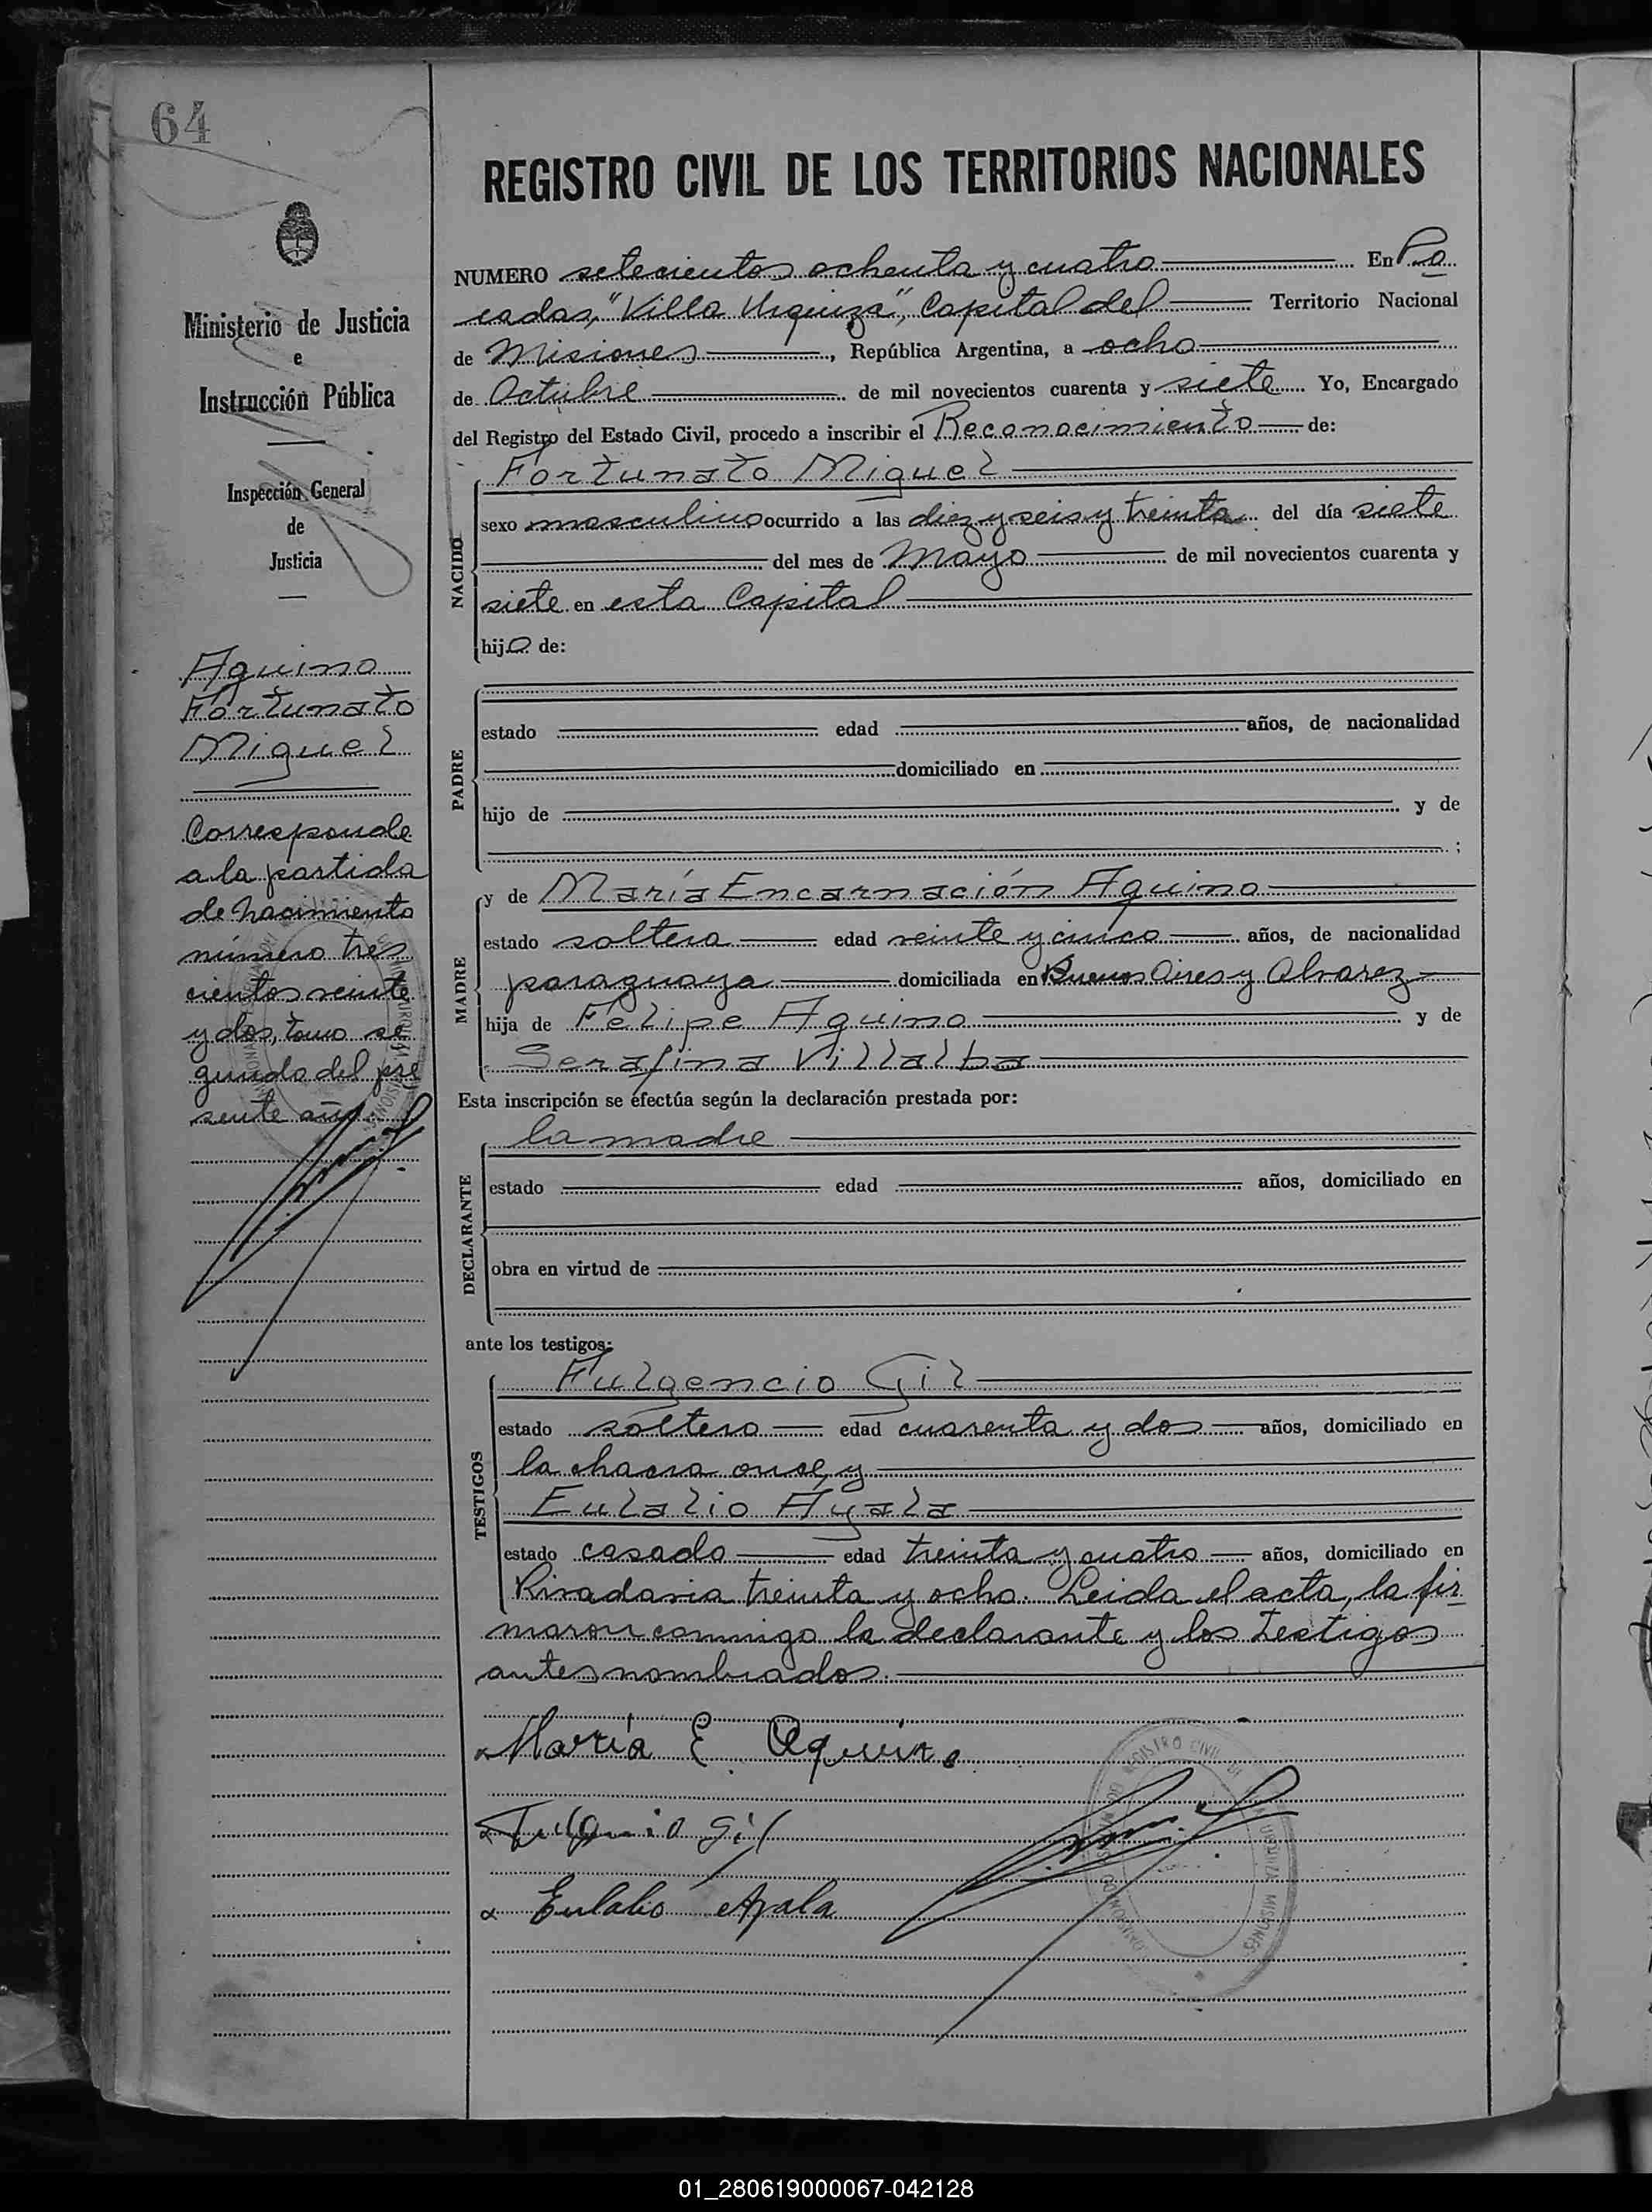 64
Ministerio de Justicia
e
Instrucción Pública
Inspección General
de
Justicia
Aquino
Fortunato
Miguel
Corresponde
a la partida
de nacimiento
número tres
cientos veinte
y dos, tomo se
gundo del pre
sente año
REGISTRO CIVIL DE LOS TERRITORIOS NACIONALES
NUMERO setecientos ochenta y cuatro En Po
sadas, "Villa Urquiza", Capital del Territorio Nacional
de Misiones, República Argentina, a ocho
de Octubre de mil novecientos cuarenta y siete Yo, Encargado
del Registro del Estado Civil, procedo a inscribir el Reconocimiento de:
Fortunato Miguel
NACIDO
sexo masculino ocurrido a las diez y seis y treinta del día siete
del mes de Mayo de mil novecientos cuarenta y
siete en esta Capital
hijo de:
PADRE
estado edad años, de nacionalidad
domiciliado en
hijo de y de
;
MADRE
y de María Encarnación Aquino
estado soltera edad veinte y cinco años, de nacionalidad
paraguaya domiciliada en Buenos Aires y Alvarez
hija de Felipe Aquino y de
Serafina Villalba
Esta inscripción se efectúa según la declaración prestada por:
la madre
DECLARANTE
estado edad años, domiciliado en
obra en virtud de
ante los testigos:
Fulgencio Gil
TESTIGOS
estado soltero edad cuarenta y dos años, domiciliado en
la chacra once, y
Eulalio Ayala
estado casado edad treinta y cuatro años, domiciliado en
Rivadavia treinta y ocho. Leida el acta, la fir
maron conmigo la declarante y los testigos
antes nombrados.
María E. Aquino
Fulgencio Gil
Eulalio Ayala
REGISTRO CIVIL
URQUIZA MISIONES
01_280619000067-042128